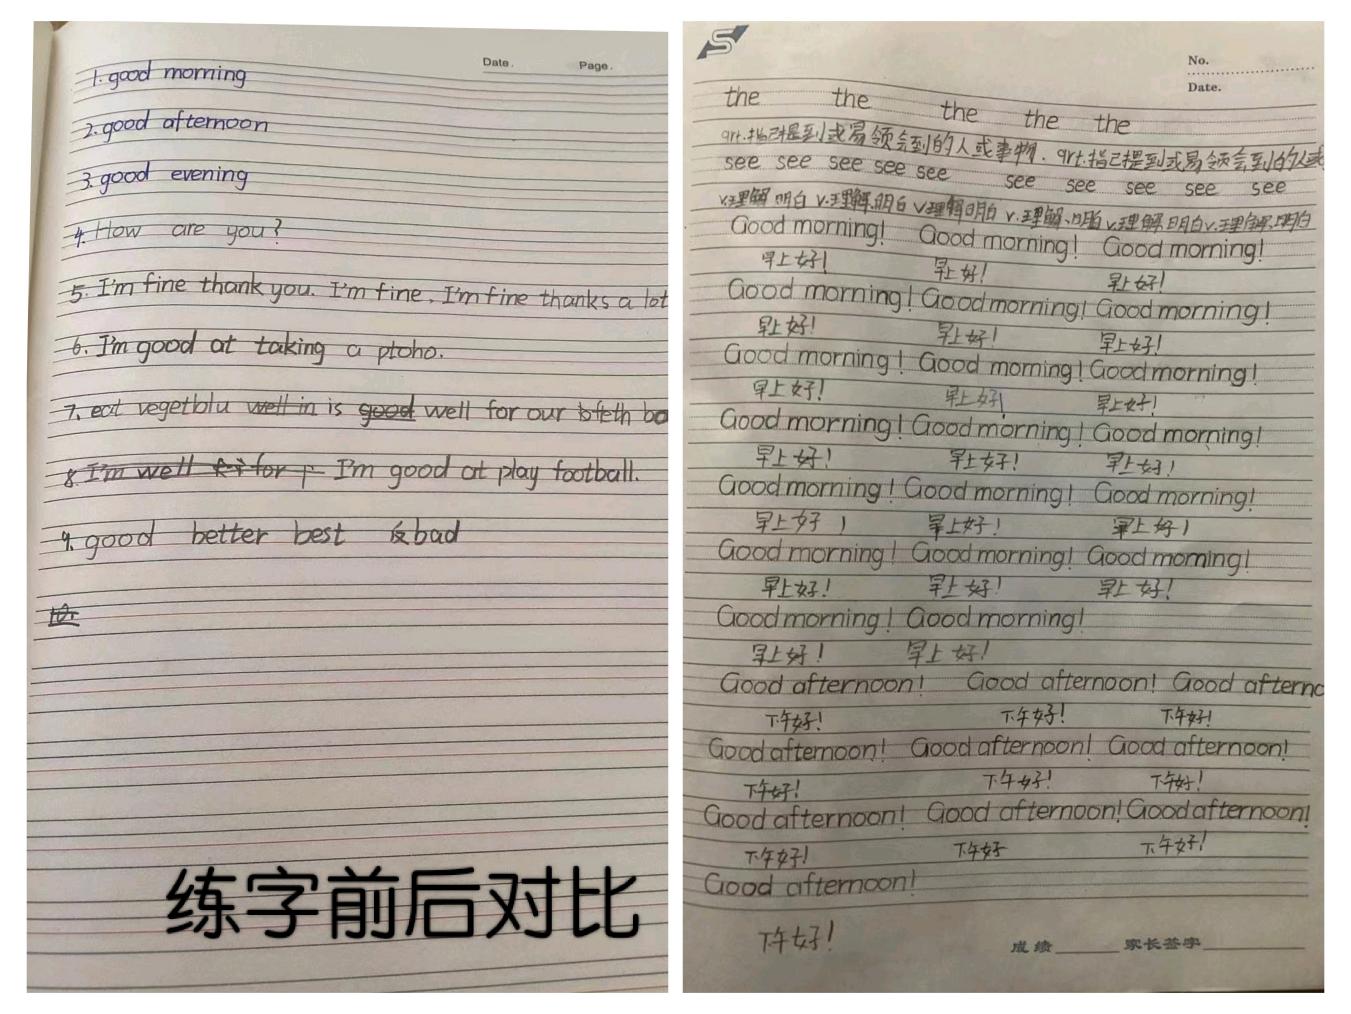 Date. Page.
1. good morning
2. good afternoon
3. good evening
4. How are you?
5. I'm fine thank you. I'm fine. I'm fine thanks a lot
6. I'm good at taking a ptoho.
7. eat vegetblu well in is good well for our
8. I'm well for I'm good at play football.
9. good better best 反bad
10.
练字前后对比
S
No.
Date.
the the the the the
art.指已提到或易领会到的人或事物. art.指已提到或易领会到的人或
see see see see see see see see see see
v.理解 明白 v.理解.明白 v理解明白 v.理解、明白 v.理解.明白 v.理解.明白
Good morning! Good morning! Good morning!
早上好! 早上好! 早上好!
Good morning! Good morning! Good morning!
早上好! 早上好! 早上好!
Good morning! Good morning! Good morning!
早上好! 早上好! 早上好!
Good morning! Good morning! Good morning!
早上好! 早上好! 早上好!
Good morning! Good morning! Good morning!
早上好! 早上好! 早上好!
Good morning! Good morning! Good morning!
早上好! 早上好! 早上好!
Good morning! Good morning!
早上好! 早上好!
Good afternoon! Good afternoon! Good afterno
下午好! 下午好! 下午好!
Good afternoon! Good afternoon! Good afternoon!
下午好! 下午好! 下午好!
Good afternoon! Good afternoon! Good afternoon!
下午好! 下午好 下午好!
Good afternoon!
下午好!
成绩 家长签字